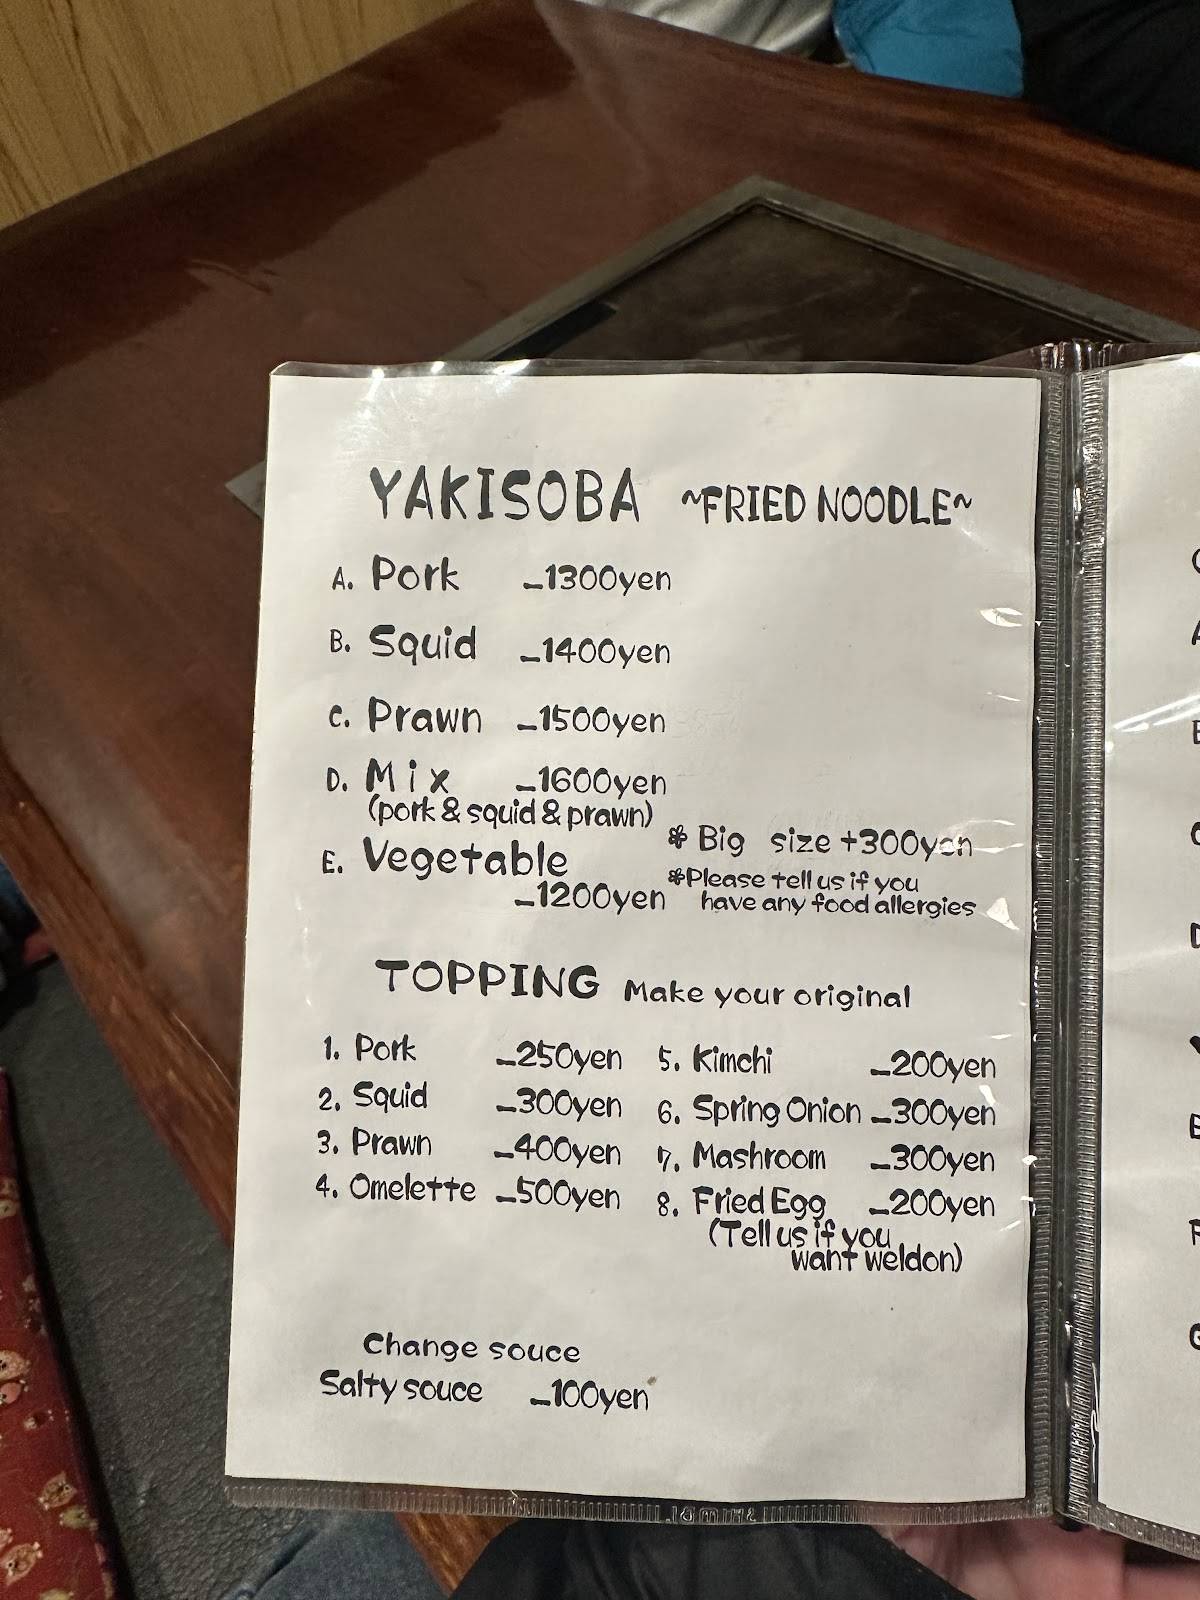 YAKISOBA ~FRIED NOODLE~
A. Pork -1300yen
B. Squid -1400yen
C. Prawn -1500yen
D. Mix -1600yen
(pork & squid & prawn)
E. Vegetable
-1200yen
* Big size +300yen
*Please tell us if you
have any food allergies
TOPPING Make your original
1. Pork -250yen
2. Squid -300yen
3. Prawn -400yen
4. Omelette -500yen
5. Kimchi -200yen
6. Spring Onion -300yen
7. Mashroom -300yen
8. Fried Egg -200yen
(Tell us if you
want weldon)
Change souce
Salty souce -100yen